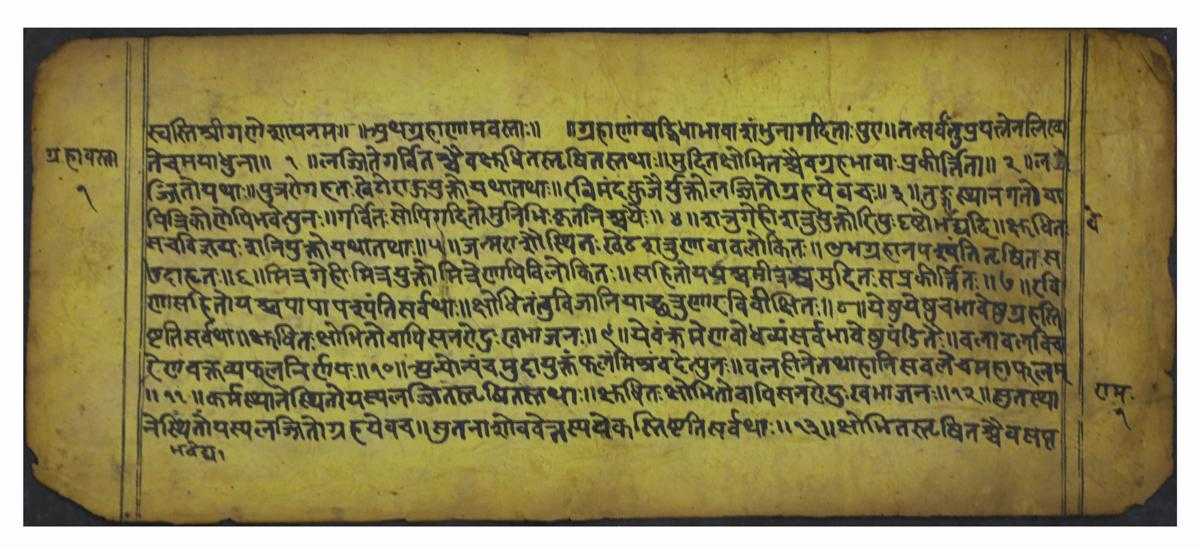 ग्रहावस्ता
१
स्वस्तिश्रीगणेशायनमः॥ ॥अथग्रहाणामवस्ताः॥ ॥ग्रहाणांषड्विधाभावाशंभुनागदिताःपुरा॥तत्सर्वंतुप्रयत्नेनलिख्य
तेचमयाधुना॥१॥लज्जितेगर्वितश्चैवक्षुधितस्तृषितस्तथाः॥मुदितक्षोभितश्चैवग्रहभावाःप्रकीर्त्तिता॥२॥ल
ज्जितोयथाः॥पुत्रगेहगतःखेटोराहुयुक्तोयथातथाः॥रविमंदकुजैर्युक्तोलज्जितोग्रहयेवचः॥३॥तुङ्गस्थानगतोवा
पित्रिकोणेपिभवेत्पुनः॥गर्वितःसोपिगदितोमुनिभिःकृतनिश्चयैः॥४॥शत्रुगेहीशत्रुयुक्तोरिपुदृष्टोभवेद्यदि॥क्षुधितः
सचविज्ञेयःशनियुक्तोयथातथा॥५॥जन्मराशौस्थितःखेटशत्रुणावावलोकितः॥शुभग्रहानपश्यतितृषितःस
उदाहृतः॥६॥मित्रगेहीमित्रयुक्तोमित्रेणापिविलोकितः॥सहितोयश्च मुदितःसप्रकीर्त्तितः॥७॥रवि
णासहितोयश्चपापापश्यंतिसर्वथाः॥क्षोभितंतंविजानियाच्छत्रुणारविवीक्षितः॥८॥येषुयेषुचभावेषुग्रहस्ति
ष्टतिसर्वथा॥क्षुधितःक्षोभितोवापिसनरोदुःखभाजनः॥९॥येवंक्रमेणवोधव्यंसर्वभावेषुपंडितैः॥वलावलविच
रेणवक्तव्यफलनिर्णयः॥१०॥अन्योन्यंचमुदायुक्तंफलंमिश्रंवदेत्पुनः॥वलहीनेतथाहानिसवलेचमहाफलम्
॥११॥कर्मस्थानेस्थितोयस्यलज्जितस्तृषितस्तथाः॥क्षुधितःक्षोभितोवापिसनरोदुःखभाजनः॥१२॥सुतस्था
नेस्थितोयस्यलज्जितोग्रहयेवच॥सुतनाशो तिष्टतिसर्वथाः॥१३॥क्षोभितस्तृषितश्चैवसप्त
मवेद्या
वे
रामः
१